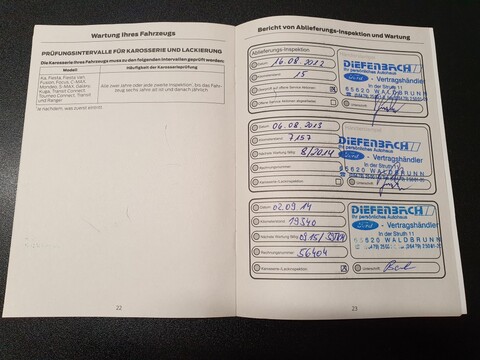 Wartung Ihres Fahrzeugs
PRÜFUNGSINTERVALLE FÜR KAROSSERIE UND LACKIERUNG
Die Karosserie Ihres Fahrzeugs muss zu den folgenden Intervallen geprüft werden:
Modell
Häufigkeit der Karosserieprüfung
Ka, Fiesta, Fiesta Van,
Fusion, Focus, C-MAX,
Mondeo, S-MAX, Galaxy,
Kuga, Transit Connect,
Tourneo Connect, Transit
und Ranger
Alle zwei Jahre oder jede zweite Inspektion*, bis das Fahrzeug
sechs Jahre alt ist und danach jährlich.
*je nachdem, was zuerst eintritt.
22
Bericht von Ablieferungs-Inspektion und Wartung
Ablieferungs-Inspektion
Datum 16.08.2012
15
DIEFENBACH
Ihr persönliches Autohaus
Ford - Vertragshändler
In der Struth 11
65620 WALDBRUNN
Datum 06.08.2013
Kilometerstand 7157
Nächste Wartung fällig 8/2014
Rechnungsnummer
Karosserie-/Lackinspektion
DIEFENBACH
Ihr persönliches Autohaus
Ford - Vertragshändler
In der Struth 11
65620 WALDBRUNN
Unterschrift
Datum 02.09.14
Kilometerstand 19340
Nächste Wartung fällig 09.15/
Rechnungsnummer 56404
Karosserie-/Lackinspektion
DIEFENBACH
Ihr persönliches Autohaus
Ford - Vertragshändler
In der Struth 11
65620 WALDBRUNN
Unterschrift
23